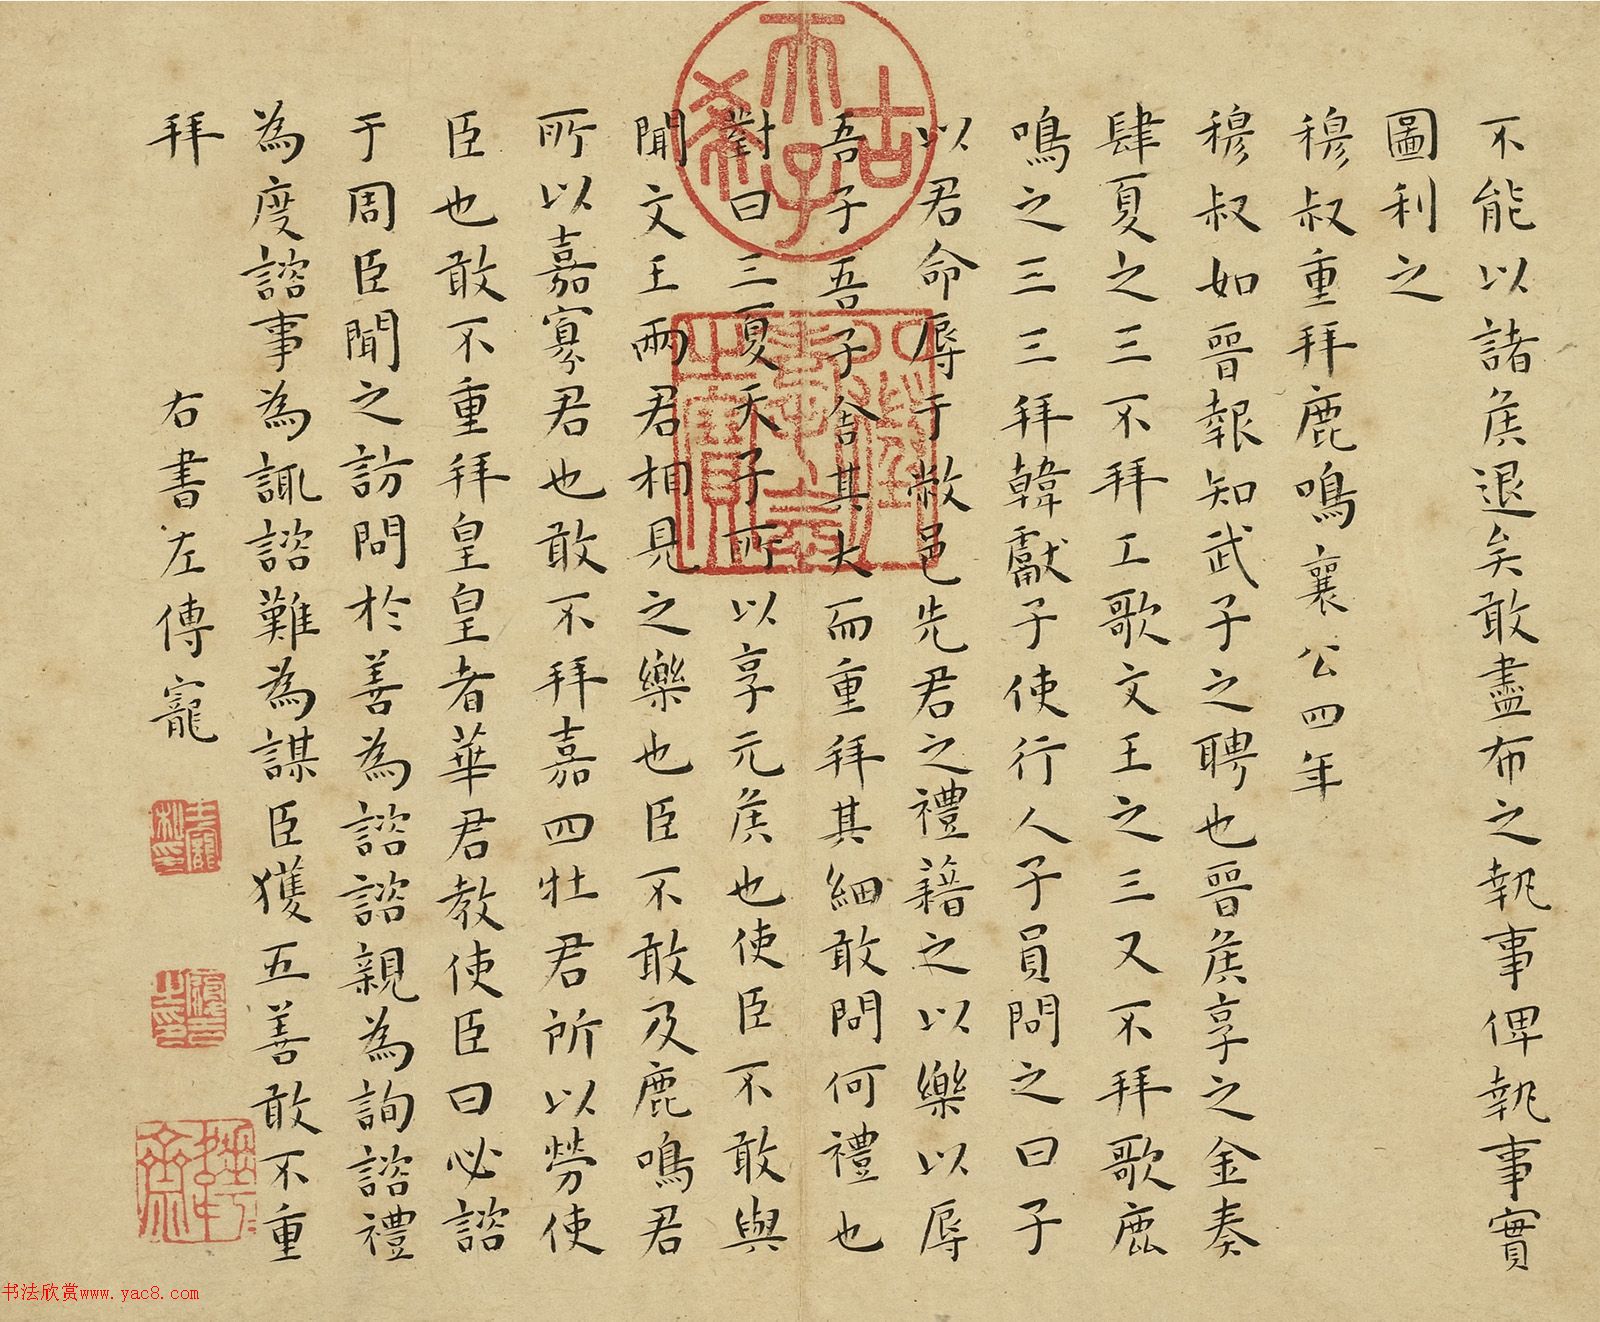 不能以諸矦退矣敢盡布之執事俾執事實
圖利之
穆叔重拜鹿鳴襄公四年
穆叔如晉報知武子之聘也晉矦享之金奏
肆夏之三不拜工歌文王之三又不拜歌鹿
鳴之三三拜韓獻子使行人子員問之曰子
以君命辱于敝邑先君之禮藉之以樂以辱
吾子吾子舍其大而重拜其細敢問何禮也
對曰三夏天子所以享元矦也使臣不敢與
聞文王兩君相見之樂也臣不敢及鹿鳴君
所以嘉寡君也敢不拜嘉四牡君所以勞使
臣也敢不重拜皇皇者華君教使臣曰必諮
于周臣聞之訪問於善為諮諮親為詢諮禮
為度諮事為諏諮難為謀臣獲五善敢不重
拜
右書左傳寵
古希天子
八徵耄念之寶
王寵私印
书法欣赏www.yac8.com